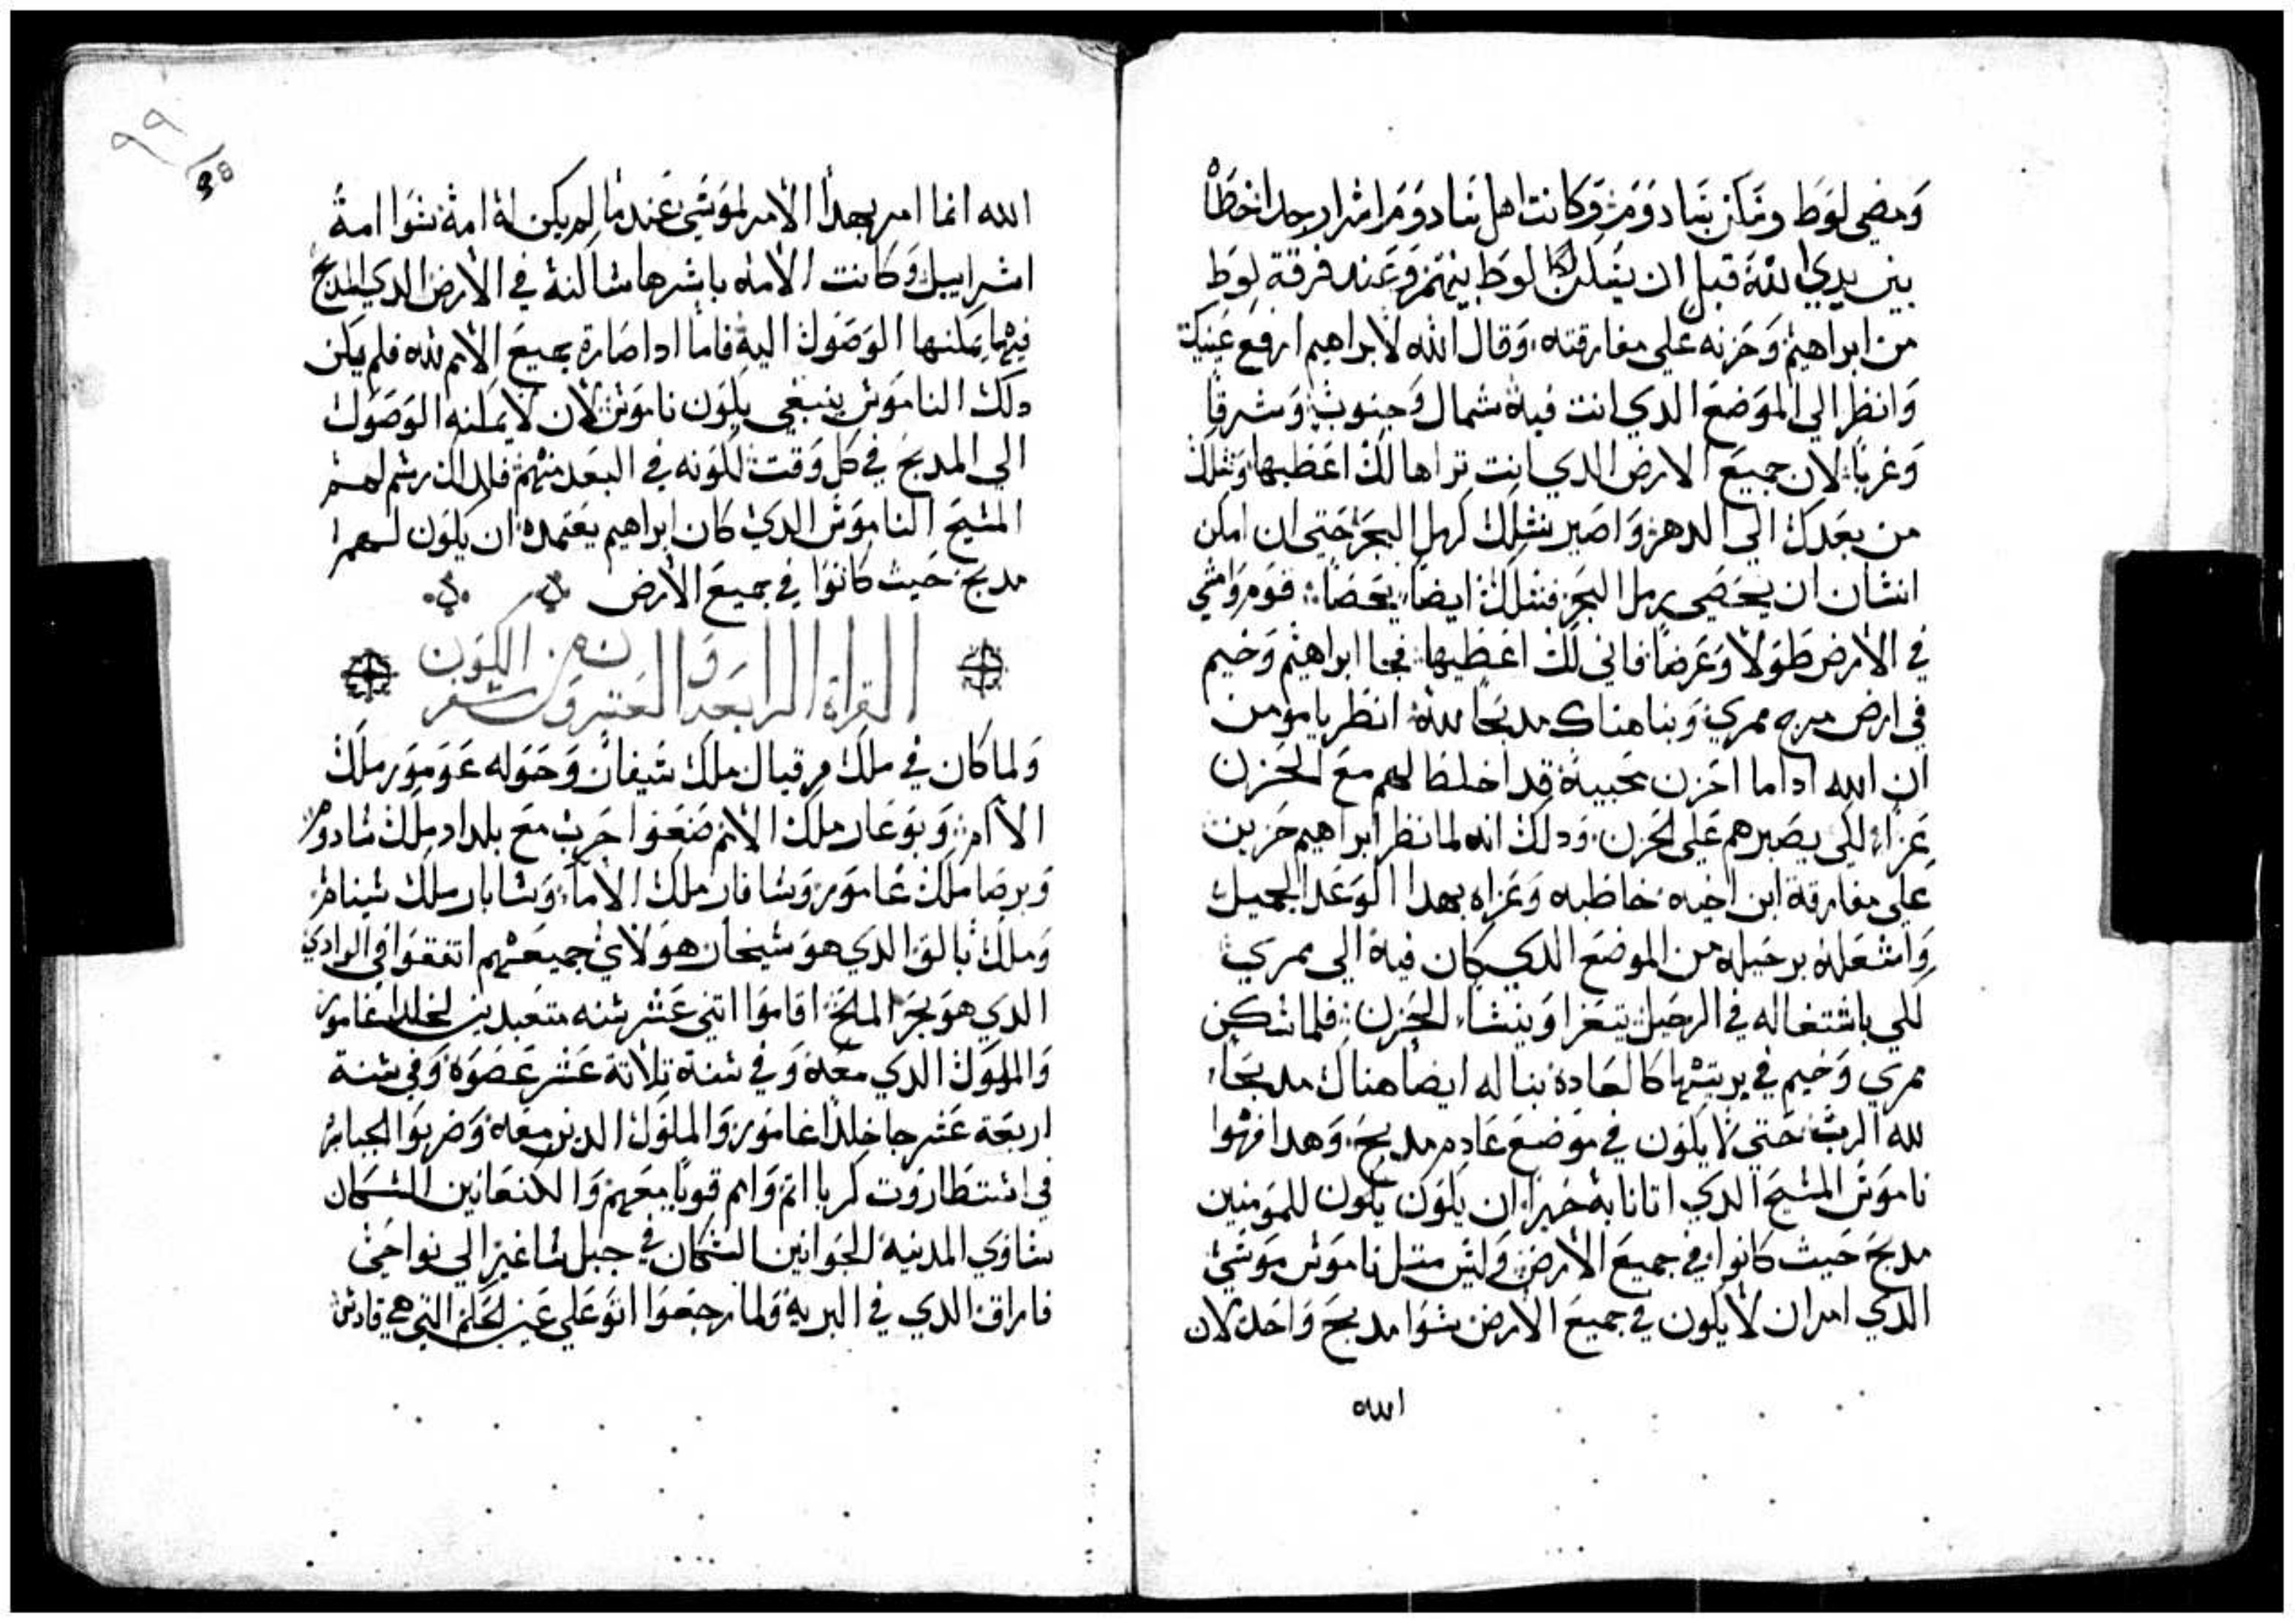 ومضي لوط وسكن بسادومر وكانت اهل سادومر اشرار جدا خطاه
بين يدي الله قبل ان يسكن لوط بينهمر وعند فرقة لوط
من ابراهيم وحزنه علي مفارقته وقال الله لابراهيم ارفع عينيك
وانظر الي الموضع الدي انت فيه شمال وجنوب وشرقا
وغربا لان جميع الارض الدي انت تراها لك اعطيها ونسلك
من بعدك الي الدهر واصير نسلك كرمل البحر حتي ان امكن
انسان ان يحصي رمل البحر فنسلك ايضا يحصا قومر وامشي
في الارض طولا وعرضا فاني لك اعطيها فجا ابراهيم وخيم
في ارض مرج ممري وبنا هناك مدبحا لله انظر يا مومن
ان الله اداما احزن محبيه قد اخلط لهم مع الحزن
عزاء لكي يصبرهم علي الحزن ودلك انه لما نظر ابراهيم حزين
علي مفارقة ابن اخيه خاطبه وعزاه بهدا الوعد الجميل
واشغله برحيله من الموضع الدي كان فيه الي ممري
لكي باشتغاله في الرحيل يتعزا وينسا الحزن فلما سكن
ممري وخيم في بريتها كالعادة بنا له ايضا هناك مدبحا
لله الرب حتي لا يكون في موضع عادم مدبح وهدا فهوا
ناموس المسيح الدي اتانا به خيرا ان يكون يكون للمومنين
مدبح حيث كانوا في جميع الارض وليس متل ناموس موسي
الدي امر ان لا يكون في جميع الارض سوا مدبح واحد لان
الله
٩٩
98
الله انما امر بهدا الامر لموسي عندما لم يكن له امة سوا امة
اسراييل وكانت الامه باسرها ساكنة في الارض الدي المدبح
فيها يمكنها الوصول اليه فاما ادا صارة جميع الامم لله فلم يكن
دلك الناموس ينبغي يكون ناموس لان لا يمكنه الوصول
الي المدبح في كل وقت لكونه في البعد منهم فلدلك رسم لهم
المسيح الناموس الدي كان ابراهيم يعتمده ان يكون لهم
مدبح حيث كانوا في جميع الارض
القراة الرابعه والعشرون من سفر الكون
ولما كان في ملك مرقيال ملك سيفان وحوله عومور ملك
الاامر وبوغار ملك الامم صنعوا حرب مع بلداد ملك سادومر
وبرصا ملك غامور وسافار ملك الاما وسابار ملك سيناس
وملك بالق الدي هو سيخار هولاي جميعهم اتفقوا في الوادي
الدي هو بحر الملح اقاموا اتني عشر سنه متعبدين لخلدا غامور
والملوك الدي معه وفي سنة تلاتة عشر عصوه وفي سنة
اربعة عشر جا خلدا غامور والملوك الدين معه وضربوا الجبابر
في استطاروت كريا اتم وامم قويا معهم والكنعانين السكان
بساوي المدنيه الحوانين السكان في جبل ساغير الي نواحي
فاراق الدي في البريه ولما رجعوا اتو علي عين الحكم التي هي قادس